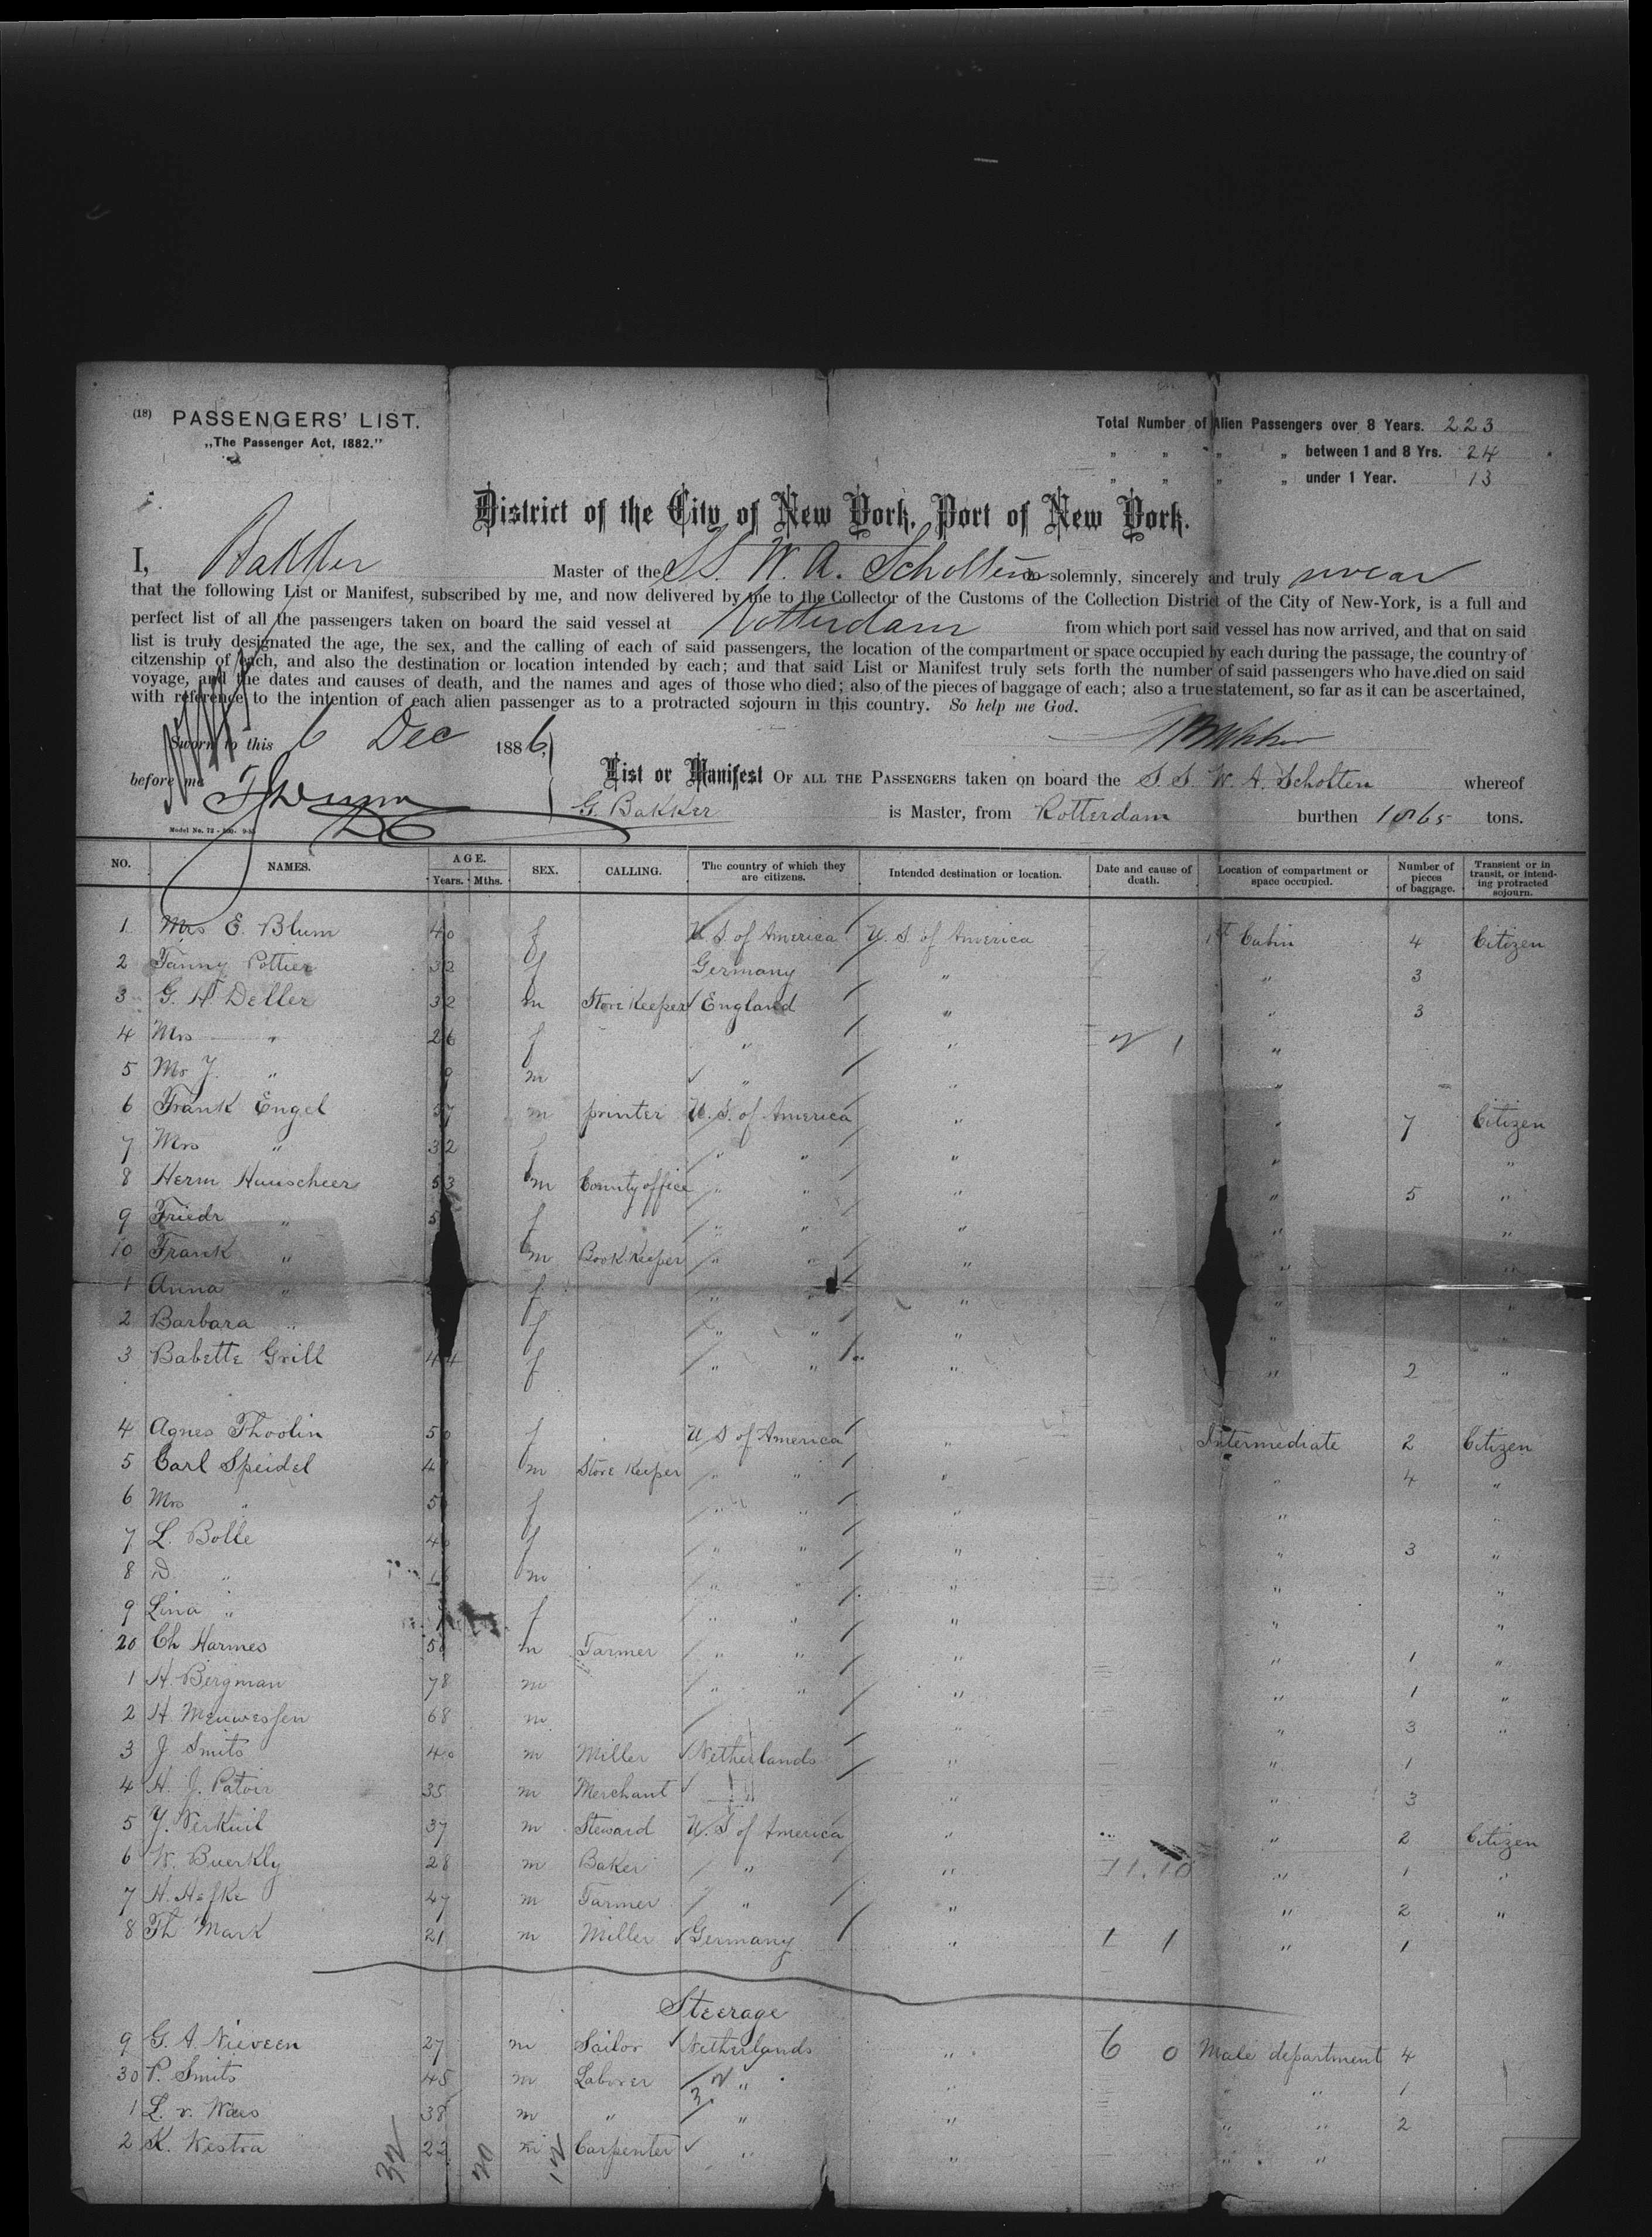 (18) PASSENGERS' LIST.
„The Passenger Act, 1882."
Total Number of Alien Passengers over 8 Years. 223
„ „ „ „ between 1 and 8 Yrs. 24
„ „ „ „ under 1 Year. 13
District of the City of New York, Port of New York.
I, Bakker Master of the SS. W. A. Scholten do solemnly, sincerely and truly swear
that the following List or Manifest, subscribed by me, and now delivered by me to the Collector of the Customs of the Collection District of the City of New-York, is a full and
perfect list of all the passengers taken on board the said vessel at Rotterdam from which port said vessel has now arrived, and that on said
list is truly designated the age, the sex, and the calling of each of said passengers, the location of the compartment or space occupied by each during the passage, the country of
citzenship of each, and also the destination or location intended by each; and that said List or Manifest truly sets forth the number of said passengers who have died on said
voyage, and the dates and causes of death, and the names and ages of those who died; also of the pieces of baggage of each; also a true statement, so far as it can be ascertained,
with reference to the intention of each alien passenger as to a protracted sojourn in this country. So help me God.
Sworn to this 6 Dec 1886,
before me
List or Manifest OF ALL THE PASSENGERS taken on board the S. S. W. A. Scholten whereof
G. Bakker is Master, from Rotterdam burthen 1865 tons.
NO. NAMES. AGE. Years. Mths. SEX. CALLING. The country of which they are citizens. Intended destination or location. Date and cause of death. Location of compartment or space occupied. Number of pieces of baggage. Transient or in transit, or intending protracted sojourn.
1 Mrs E. Blum 40 f U. S. of America U. S. of America 1st Cabin 4 Citizen
2 Fanny Pottier 32 f Germany „ „ 3
3 G. H. Deller 32 m Store Keeper England „ „ 3
4 Mrs „ 26 f „ „ „
5 Mr J. „ 9 m „ „ „
6 Frank Engel 57 m printer U. S. of America „ „ 7 Citizen
7 Mrs „ 32 f „ „ „ „ „
8 Herm Hunscheer 53 m County office „ „ „ „ 5 „
9 Friedr „ f „ „ „ „ „
10 Frank „ m Book Keeper „ „ „ „ „
1 Anna „ f „ „ „ „ „
2 Barbara „ f „ „ „ „ „
3 Babette Grill 44 f „ „ „ „ 2 „
4 Agnes Thoolin 50 f U S of America „ Intermediate 2 Citizen
5 Carl Speidel m Store Keeper „ „ „ „ 4 „
6 Mrs „ f „ „ „ „ „
7 L. Bolle f „ „ „ „ 3 „
8 D. „ m „ „ „ „ „
9 Lina „ f „ „ „ „ „
20 Ch Harmes m Farmer „ „ „ „ 1 „
1 H. Bergman 78 m „ „ „ „ 1 „
2 H. Meuwessen 68 m „ „ 3 „
3 J. Smits 40 m Miller Netherlands „ „ 1
4 H. J. Patoir 35 m Merchant „ „ „ 3
5 Y. Verkuil 37 m Steward U. S of America „ „ 2 Citizen
6 W. Buerkly 28 m Baker „ „ „ 1 „
7 H. Hefke 47 m Farmer „ „ „ 2 „
8 Th Mark 21 m Miller Germany „ „ 1
Steerage
9 G. A. Nieveen 27 m Sailor Netherlands „ 6 0 Male department 4
30 P. Smits 45 m Laborer „ „ „ „ 1
1 L. v. Wees 38 m „ „ „ „ „ 2
2 K. Westra 22 m Carpenter „ „ „ „